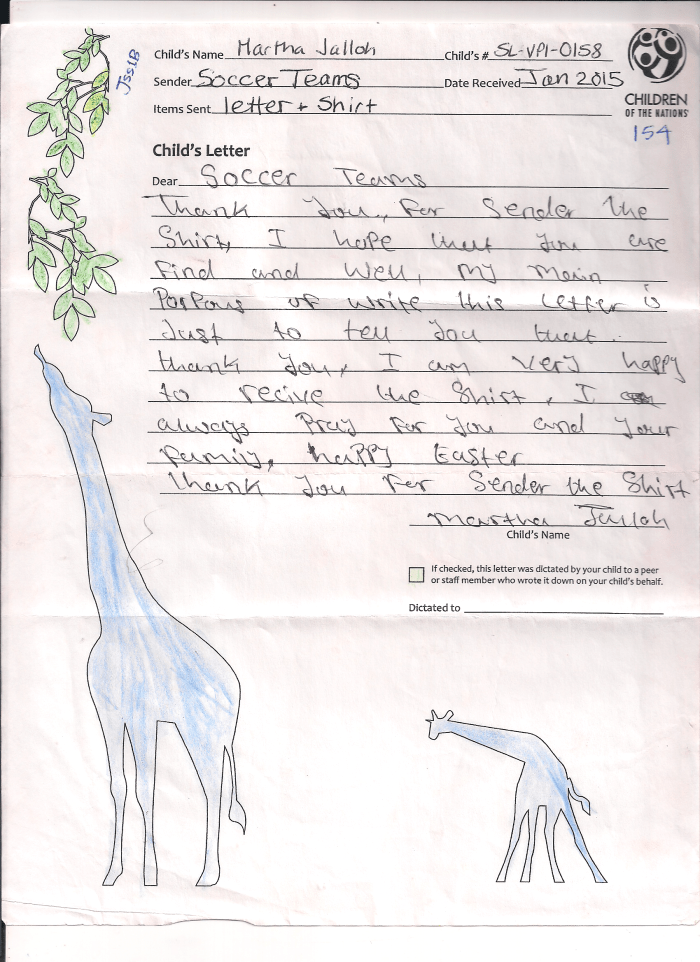 JSS1B
Child's Name Martha Jalloh Child's # SL-VP1-0158
Sender Soccer Teams Date Received Jan 2015
Items Sent letter + Shirt
CHILDREN
OF THE NATIONS
154
Child's Letter
Dear Soccer Teams
Thank You, For Sender the
Shirt, I hope that you are
find and well, my main
Porpous of write this letter is
Just to tell you that
thank you, I am very happy
to recive the Shirt, I
always Pray for you and your
Family, happy Easter
thank you For Sender the Shirt
martha Jalloh
Child's Name
If checked, this letter was dictated by your child to a peer
or staff member who wrote it down on your child's behalf.
Dictated to